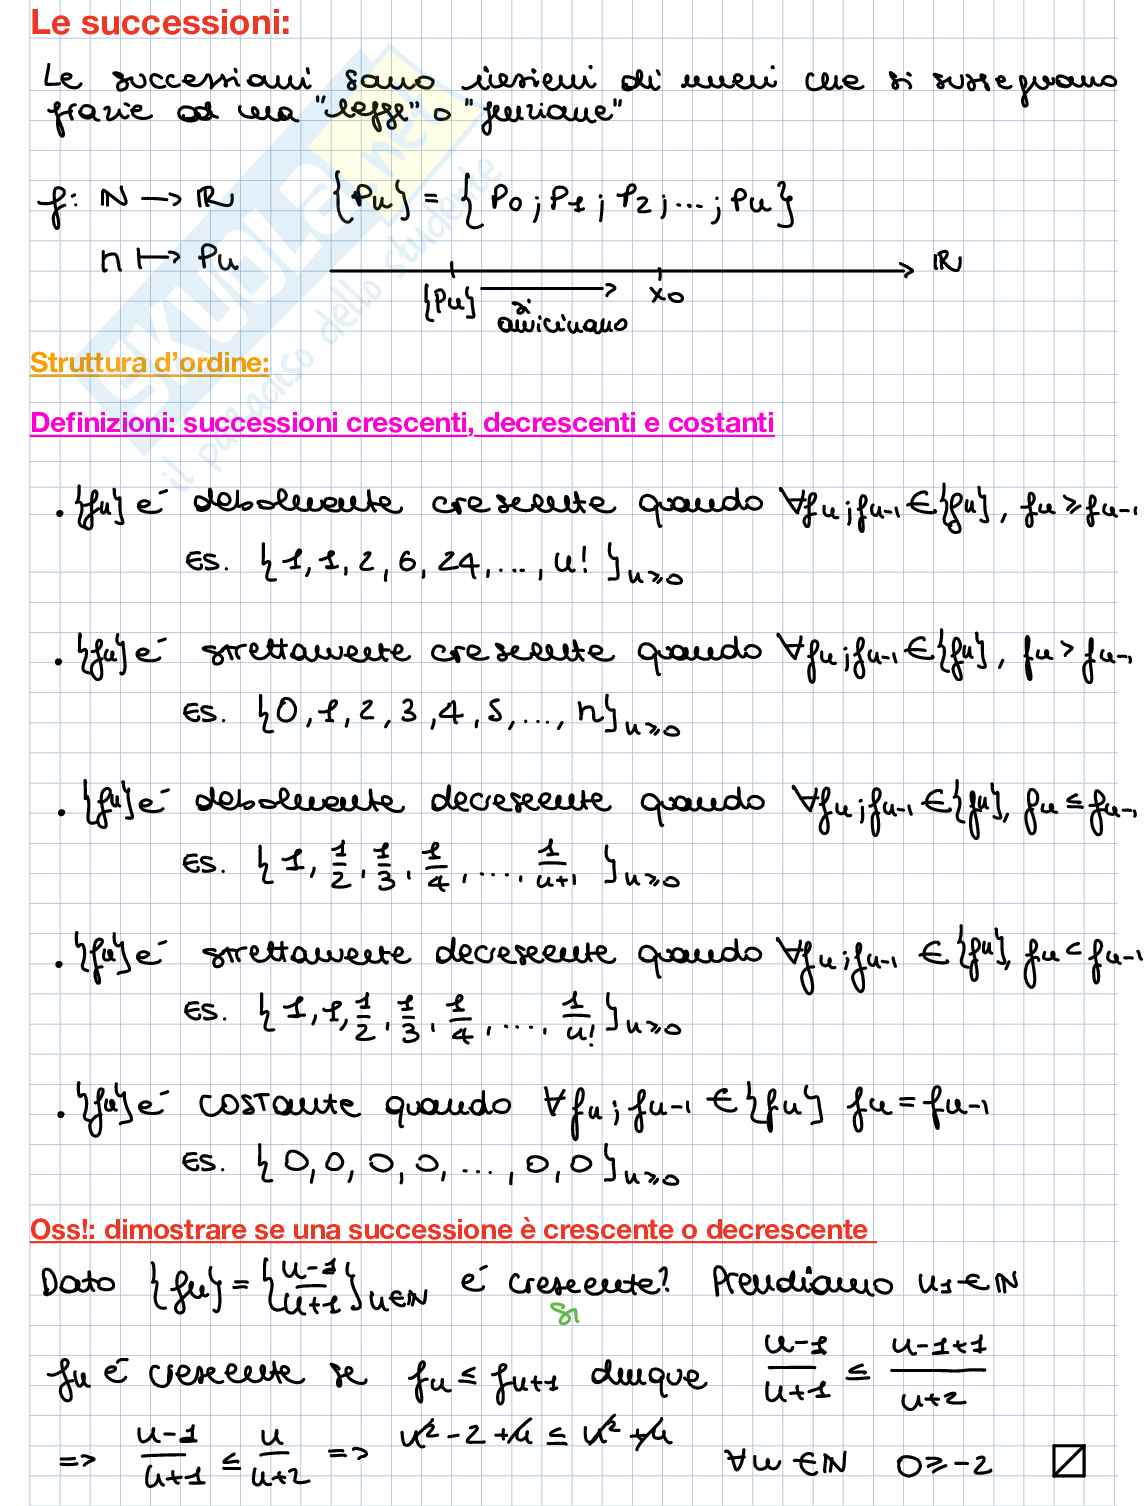 Le successioni:
Le successioni sono insiemi di numeri che si susseguono
grazie ad una "legge" o "funzione"
f: ℕ → ℝ {Pn} = {P0 ; P1 ; P2 ; ... ; Pn}
n ↦ Pn
{Pn} si avvicinano x0 ℝ
Struttura d'ordine:
Definizioni: successioni crescenti, decrescenti e costanti
. {fn} é debolmente crescente quando ∀fn ; fn-1 ∈ {fn}, fn ≥ fn-1
ES. {1, 1, 2, 6, 24, ..., n!}n≥0
. {fn} é strettamente crescente quando ∀fn ; fn-1 ∈ {fn}, fn > fn-1
ES. {0, 1, 2, 3, 4, 5, ..., n}n≥0
. {fn} é debolmente decrescente quando ∀fn ; fn-1 ∈ {fn}, fn ≤ fn-1
ES. {1, 1/2, 1/3, 1/4, ..., 1/n+1}n≥0
. {fn} é strettamente decrescente quando ∀fn ; fn-1 ∈ {fn}, fn < fn-1
ES. {1, 1, 1/2, 1/3, 1/4, ..., 1/n!}n≥0
. {fn} é costante quando ∀fn ; fn-1 ∈ {fn} fn = fn-1
ES. {0, 0, 0, 0, ..., 0, 0}n≥0
Oss!: dimostrare se una successione è crescente o decrescente
Dato {fn} = {n-1/n+1}n∈ℕ é crescente? Prendiamo n1 ∈ ℕ
SI
fn é crescente se fn ≤ fn+1 dunque n-1/n+1 ≤ n-1+1/n+2
=> n-1/n+1 ≤ n/n+2 => n² - 2 + n ≤ n² + n ∀n ∈ ℕ 0 ≥ -2
SKUOLA.net
il paradiso dello studente